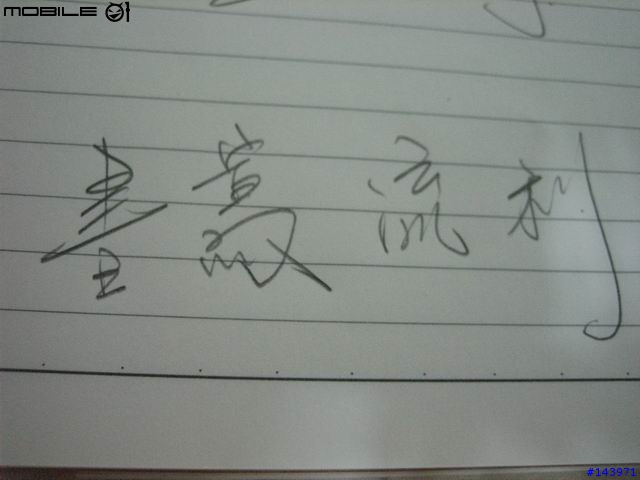 MOBILE 01
書寫流利
#143971